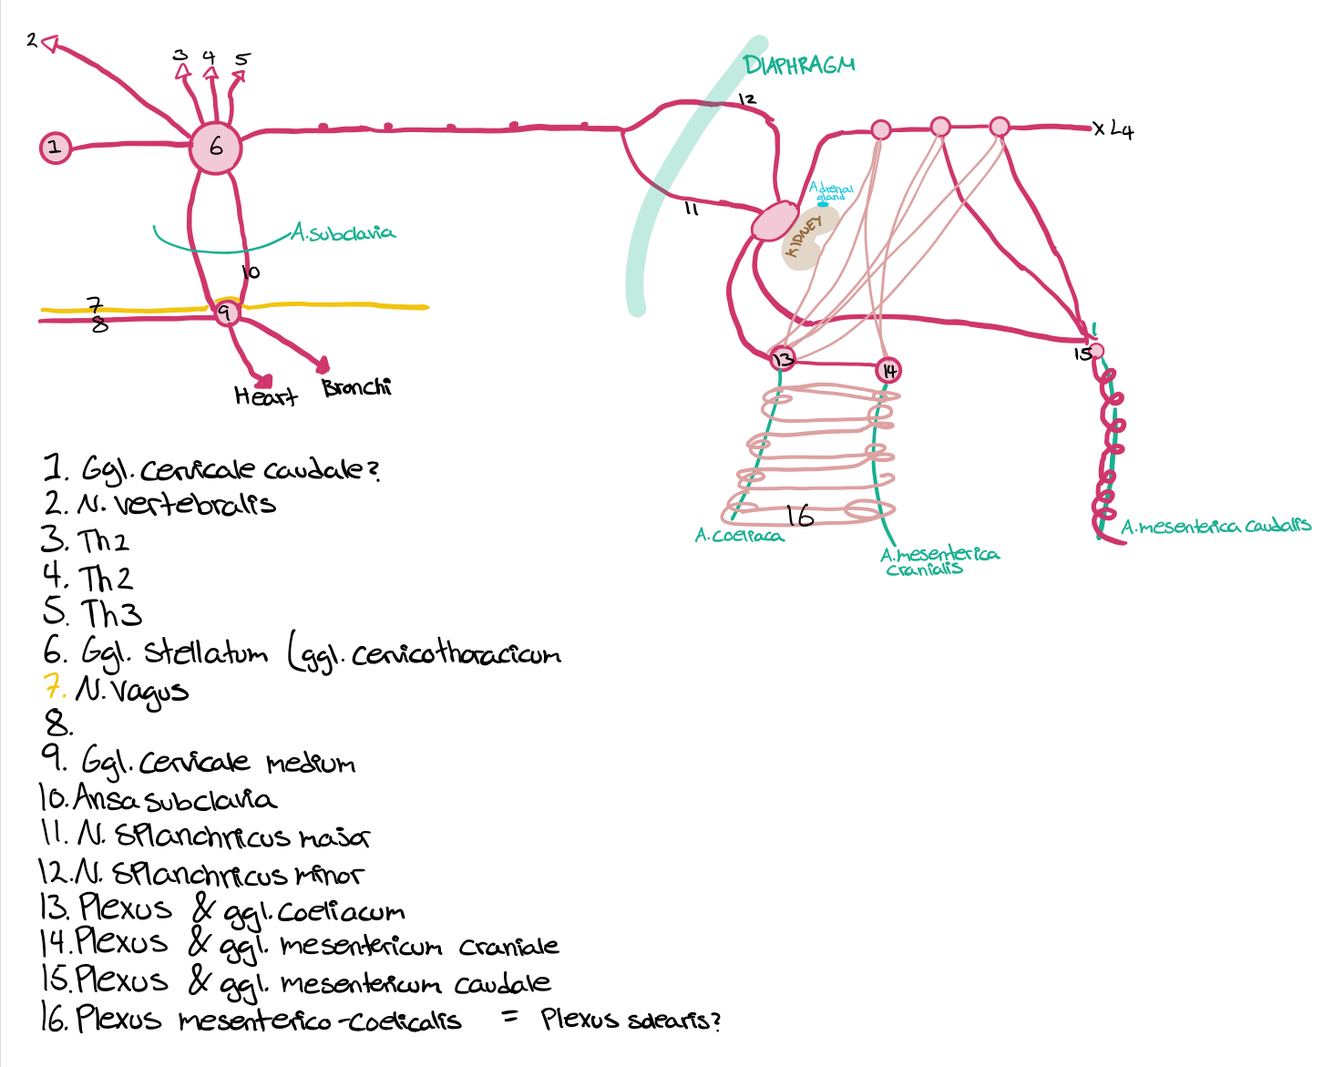 2
3 4 5
DIAPHRAGM
12
1
6
x L4
11
Adrenal
gland
KIDNEY
A.subclavia
10
7
8
9
13
14
15
Heart
Bronchi
16
A.coeliaca
A.mesenterica
cranialis
A.mesenterica caudalis
1. Ggl. cervicale caudale?
2. N. vertebralis
3. Th2
4. Th2
5. Th3
6. Ggl. stellatum (ggl. cervicothoracicum
7. N. Vagus
8.
9. Ggl. cervicale medium
10. Ansa subclavia
11. N. splanchnicus major
12. N. splanchnicus minor
13. Plexus & ggl. coeliacum
14. Plexus & ggl. mesentericum craniale
15. Plexus & ggl. mesentericum caudale
16. Plexus mesenterico-coelicalis = Plexus solearis?